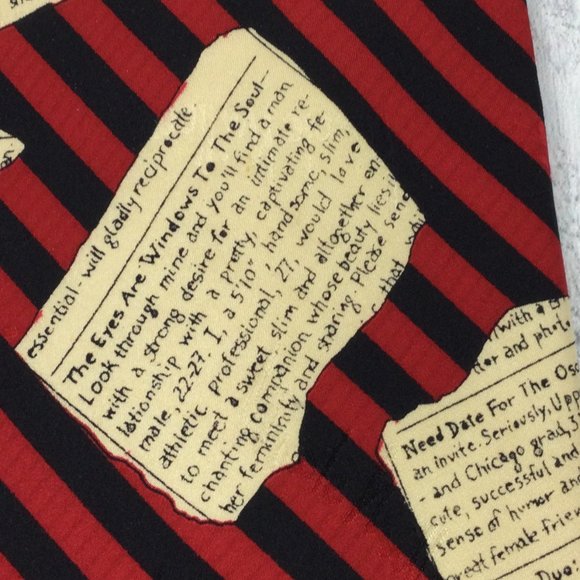 essential - will gladly reciprocate.
The Eyes Are Windows To The Soul-
Look through mine and you'll find a man
with a strong desire for an intimate re-
lationship with a pretty, captivating fe
male, 22-27. I, a 5'10", handsome, slim,
athletic professional, 27, would love
to meet a sweet, slim and altogether en
chanting companion whose beauty lies in
her femininity and sharing. Please send
that
with a
and photo
Need Date For The Osc
an invite. Seriously, Upp
- and Chicago grad, S
cute, successful and
sense of humor and
great female frien
Duo: